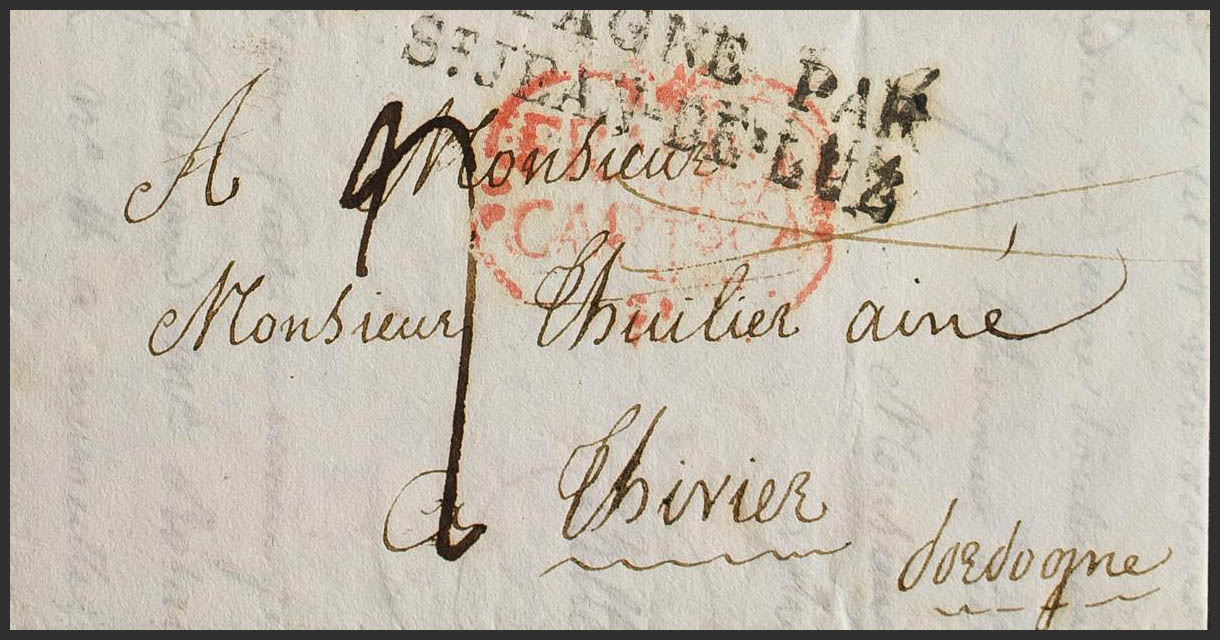 PAGNE PAR
St. JEAN-DE-LUZ
A Monsieur
CARTERA
Monsieur Thuilier ainé
a Thivier
dordogne